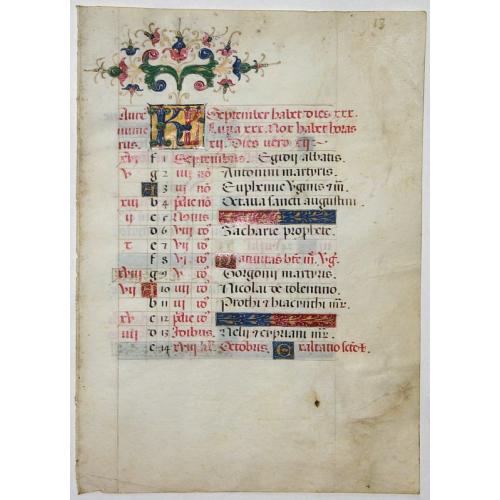 13
Aure KL September habet dies xxx.
nume Luna xxx. Nox habet horas
rus. xij. Dies vero xij
xvj f 1 Septembris. Egidij abbatis.
v g 2 iiij nõ Antonini martyris.
A 3 iij nõ Euphemie v̄ginis &
xiij b 4 p̃die nõ Octaua sancti augustini
ij c 5 Nonus
d 6 viij id' Zacharie prophete.
x e 7 vij id'
f 8 vj id' Natiuitas bt̃e m̃. v̄g.
xviij g 9 v id' Gorgonij martyris.
vij A 10 iiij id' Nicolai de tolentino.
b 11 iij id' Prothi & hiacynthi m̃r.
xv c 12 p̃die id'
iiij d 13 Idibus. & cypriani m̃r.
e 14 xviij kł. Octobris. Exaltatio scẽ †.